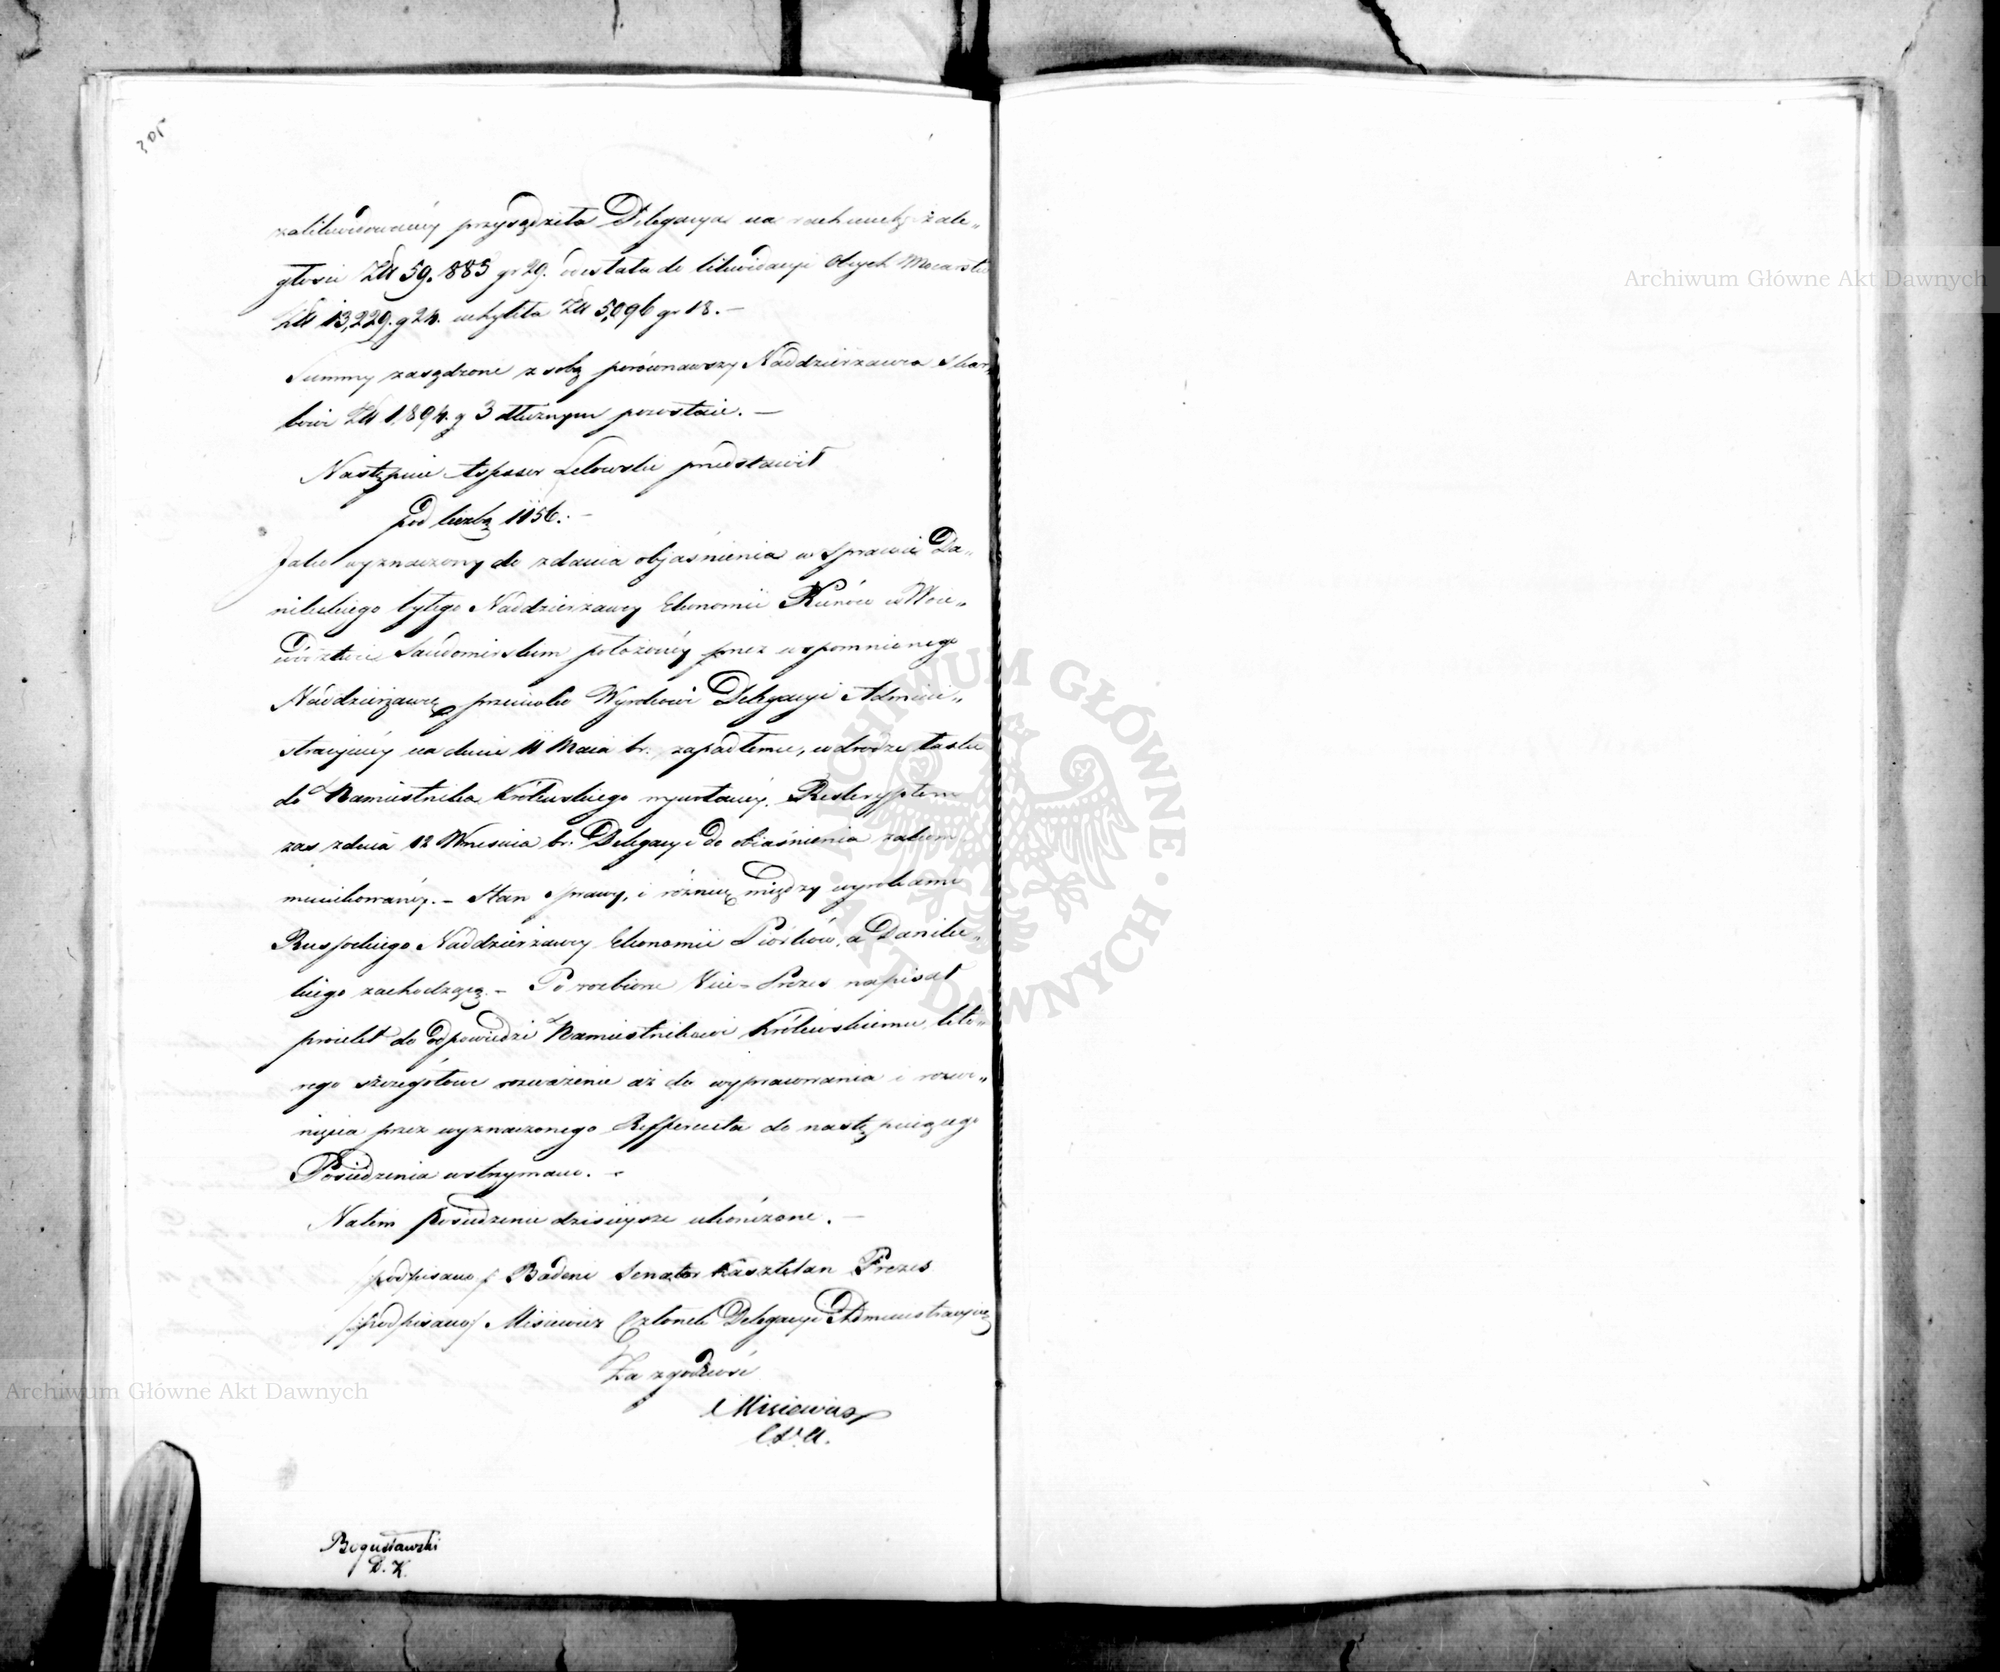 305
zalikwidowaney przysądziła Delegacya na rachunek zale„
głości Zł 59,883 gr 29. odesłała do likwidacyi Obcych Mocarstw
Zł 13,229. g 24. uchyliła Zł 5,096 gr 18. –
Summy zasądzone z sobą porównawszy Naddzierżawca Skar„
bowi Zł 1,894. g 3 dłużnym pozostaie. –
Następnie Assessor Lelowski przedstawił
pod liczbą 1156. –
Jako wyznaczony do zdania obiaśnienia w sprawie Da„
nileckiego byłego Naddzierżawcy Ekonomii Kunów w Woie„
wództwie Sandomirskim położoney przez wspomnionego
Naddzierżawcę przeciwko Wyrokowi Delegacyi Admini„
stracyiney na dniu 11 Maia br. zapadłemu, w drodze łaski
do Namiestnika Królewskiego wywołaney. Reskryptem
zaś z dnia 12 Wrześnla br. Delegacyi do obiaśnienia zakom
munikowaney. – Stan sprawy, i różnicę między wyrokami
Russockiego Naddzierżawcy Ekonomii Piórków, a Danilec„
kiego zachodzącą. – Po rozbiorze Vice-Prezes napisał
proiekt do odpowiedzi Namiestnikowi Królewskiemu któ„
rego szczegółowe rozważenie aż do wypracowania i rozwi„
nięcia przez wyznaczonego Refferenta do następuiącego
Posiedzenia wstrzymano. –
Na tem posiedzenie dzisieysze ukończone. –
/podpisano/ Badeni Senator Kasztelan Prezes
/podpisano/ Misiewicz Członek Delegacyi Administracyiney
Za zgodność
Misiewicz
C.D.A.
Bogusławski
D. K.
Archiwum Główne Akt Dawnych
Archiwum Główne Akt Dawnych
ARCHIWUM GŁÓWNE · AKT DAWNYCH ·